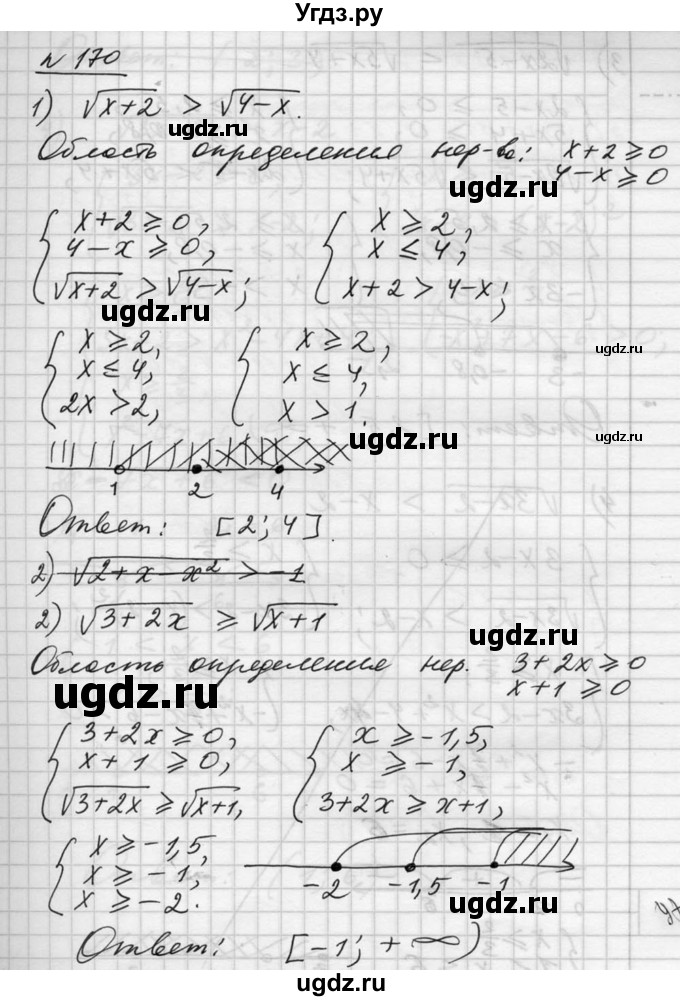 Угдз.ру
n 170
1) √(x+2) > √(4-x).
ugdz.ru
Область определения нер-ва: x+2 ≥ 0
4-x ≥ 0
ugdz.ru
{ x+2 ≥ 0, { x ≥ 2,
4-x ≥ 0, x ≤ 4,
√(x+2) > √(4-x); x+2 > 4-x;
ugdz.ru ugdz.ru
{ x ≥ 2, { x ≥ 2,
x ≤ 4, x ≤ 4,
2x > 2, x > 1.
ugdz.ru
ugdz.ru
1 2 4
Ответ: [2; 4].
2) √(2+x-x²) > -1
2) √(3+2x) ≥ √(x+1)
ugdz.ru
Область определения нер. 3+2x ≥ 0
x+1 ≥ 0
ugdz.ru
{ 3+2x ≥ 0, { x ≥ -1,5,
x+1 ≥ 0, x ≥ -1,
√(3+2x) ≥ √(x+1), 3+2x ≥ x+1,
{ x ≥ -1,5,
x ≥ -1,
x ≥ -2.
-2 -1,5 -1
ugdz.ru
Ответ: [-1; +∞)
ugdz.ru
ugdz.ru